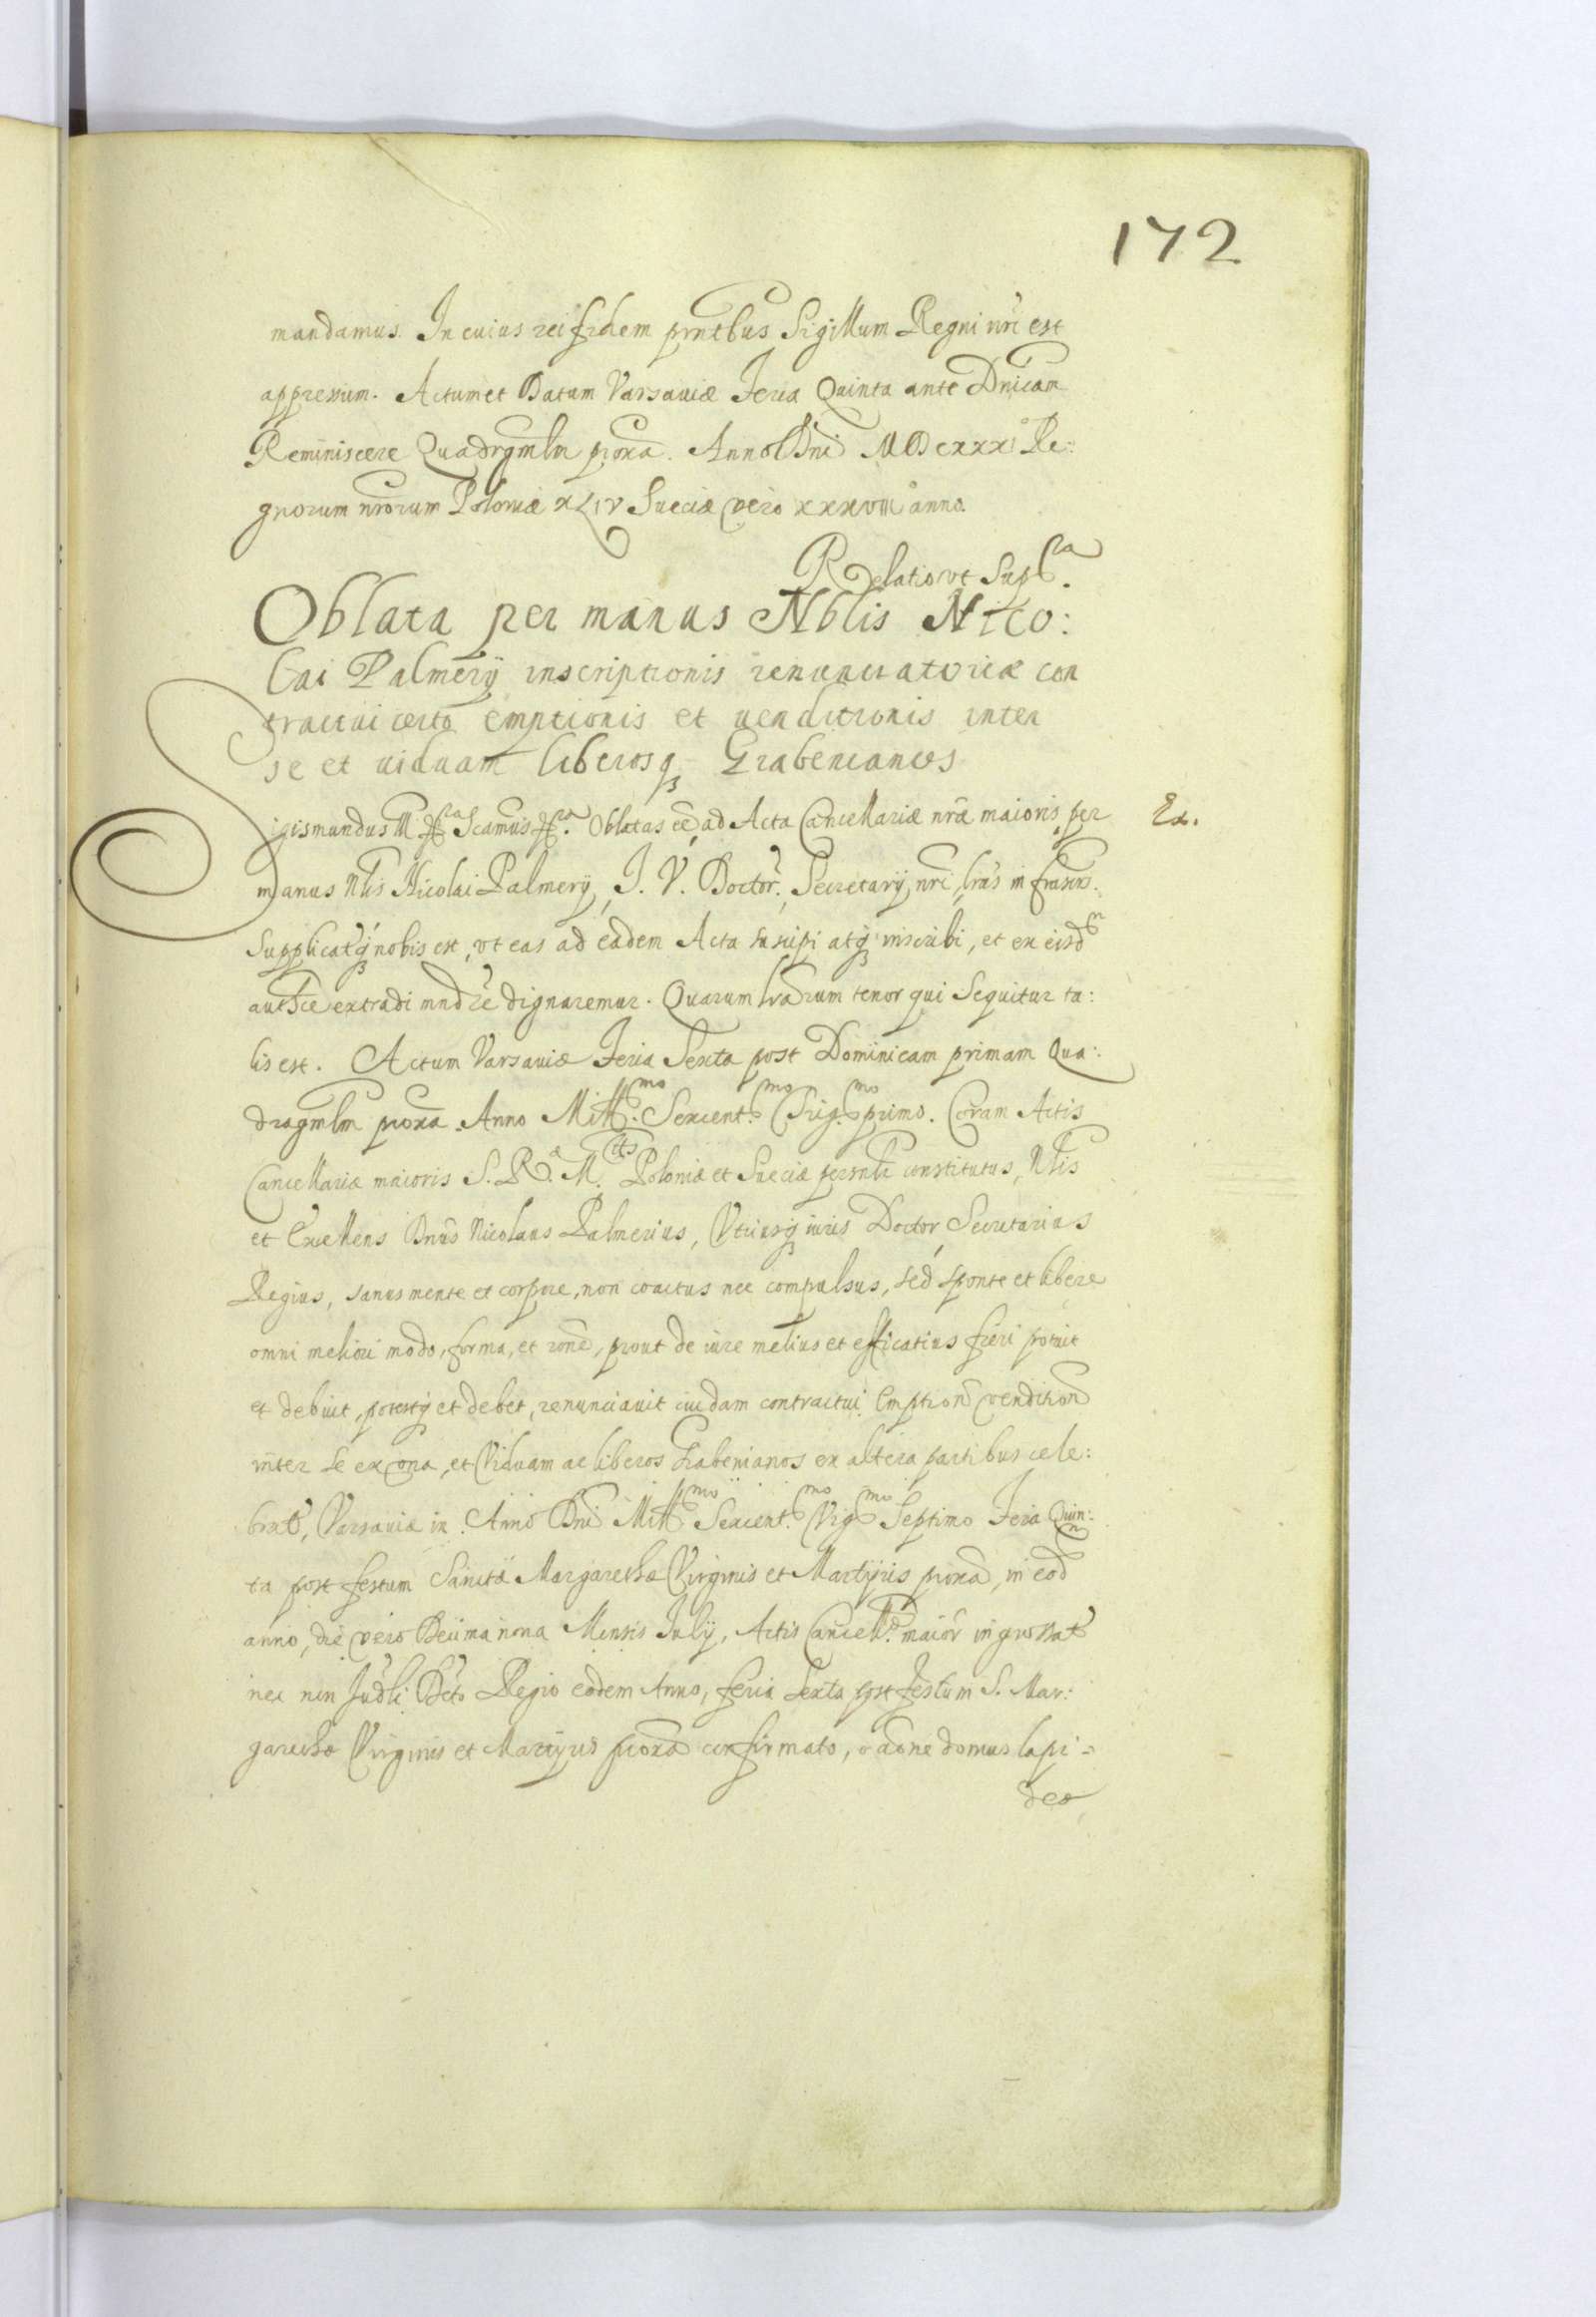 172
mandamus. In cuius rei fidem pntibus Sigillum Regni nri est
appressum. Actum et Datum Varsaviæ Feria Quinta ante Dnicam
Reminiscere Quadrgmlm proxa. Anno Dni MDCXXXI Re:
gnorum nrorum Poloniæ XLIV Sueciæ vero XXXVIII anno.
Relatio ut Supra.
Oblata per manus Nblis Nico:
lai Palmerÿ inscriptionis renunciatoriæ con
tractui certo emptionis et uenditionis inter
se et uiduam liberosq Grabencanos
Sigismundus III etra Scamus etra. Oblatas eê ad Acta Cancellariæ nræ maioris, per
Ex.
manus Nlis Nicolai Palmerÿ, J. V. Doctor, Secretarÿ nri, lras infrascr.
Supplicatq nobis est, ut eas ad eadem Acta suscipi atq inscribi, et ex eisdm
authce extradi mndre dignaremur. Quarum lrarum tenor qui Sequitur ta:
lis est. Actum Varsaviæ Feria Sexta post Dominicam primam Qua:
dragmlm proxa. Anno Millmo. Sexcent.mo Trig.mo primo. Coram Actis
Cancellariæ maioris S. R. M. Poloniæ et Sueciæ persnlr constitutus, Nlis
et Excellens Dnus Nicolaus Palmerius, Utriusq iuris Doctor, Secretarius
Regius, sanus mente et corpore, non coactus nec compulsus, sed sponte et libere
omni meliori modo, forma, et rone, prout de iure melius et efficatius fieri potuit
et debuit, potestq et debet, renunciavit cuidam contractui Emption vendition
inter se ex una, et Viduam ac liberos Grabenianos ex altera partibus cele:
brat, Varsaviæ in Anno Dni Millmo Sexcent.mo Vigmo Septimo Feria Quin:
ta post festum Sanctæ Margarethæ Virginis et Martyris proxa, in eodm
anno, die vero Decima nona Mensis Julÿ, Actis Cancell. maior ingrossat
nec non Judli Dcto Regio eodem Anno, feria Sexta post festum S. Mar:
garethæ Virginis et Martyris proxa confirmato, raone domus lapi=
deæ